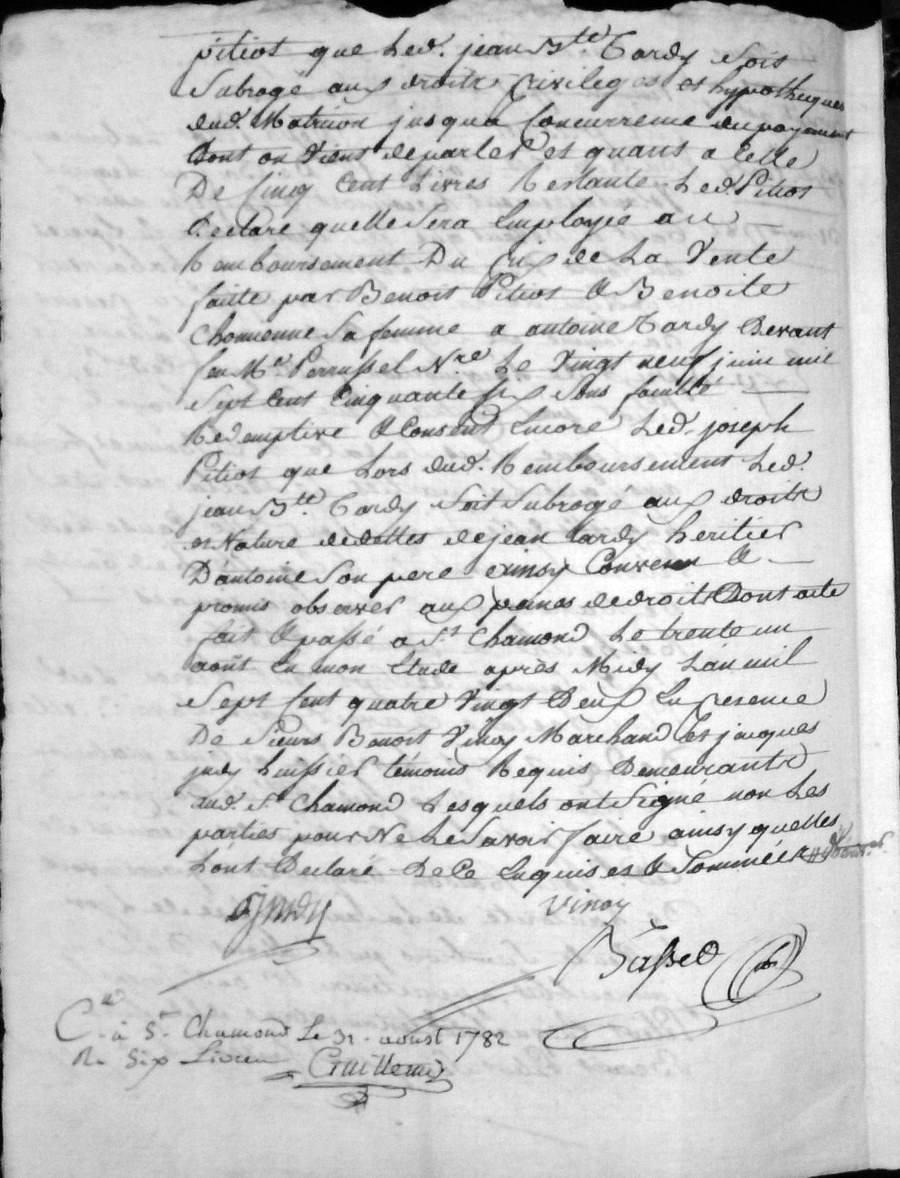 pitiot que led. jean Bte. Tardy sois
Subrogé aux droits privileges et hypotheques
dud. Matricon jusqua Concurrence du payement
dont on vient de parler et quant a Celle
De Cinq Cent Livres Restante led. Pitiot
declare quelle sera Employée au
Remboursement Du prix de La Vente
faitte par Benoit Pitiot & Benoite
Chomienne Sa femme a antoine Tardy devant
feu Me. Perrussel Nre. Le Vingt neuf juin mil
Sept Cent Cinquante six sous faculté
Redemptive & Consent Encore Led. joseph
Pitiot que Lors dud. Remboursement Led.
jean Bte. Tardy Soit Subrogé aux droits
et Nature de dettes de jean tardy heritier
D'antoine Son pere ainsy Convenu &
promis observer aux peines de droit Dont acte
fait & passé a St. Chamond Le trente un
août En mon Etude après Midy L'an mil
Sept Cent quatre Vingt Deux En presence
De Sieurs Benoit Vinoy Marchand Et jacques
judy huissier témoins Requis Demeurants
aud. St. Chamond Lesquels ont Signé non Les
parties pour Ne Le Savoir faire ainsy quelles
L'ont Declaré De Ce Enquises & Sommées
judy
Vinoy
Bassed
Clé. à St. Chamond Le 31. aoust 1782
R. Six Livres